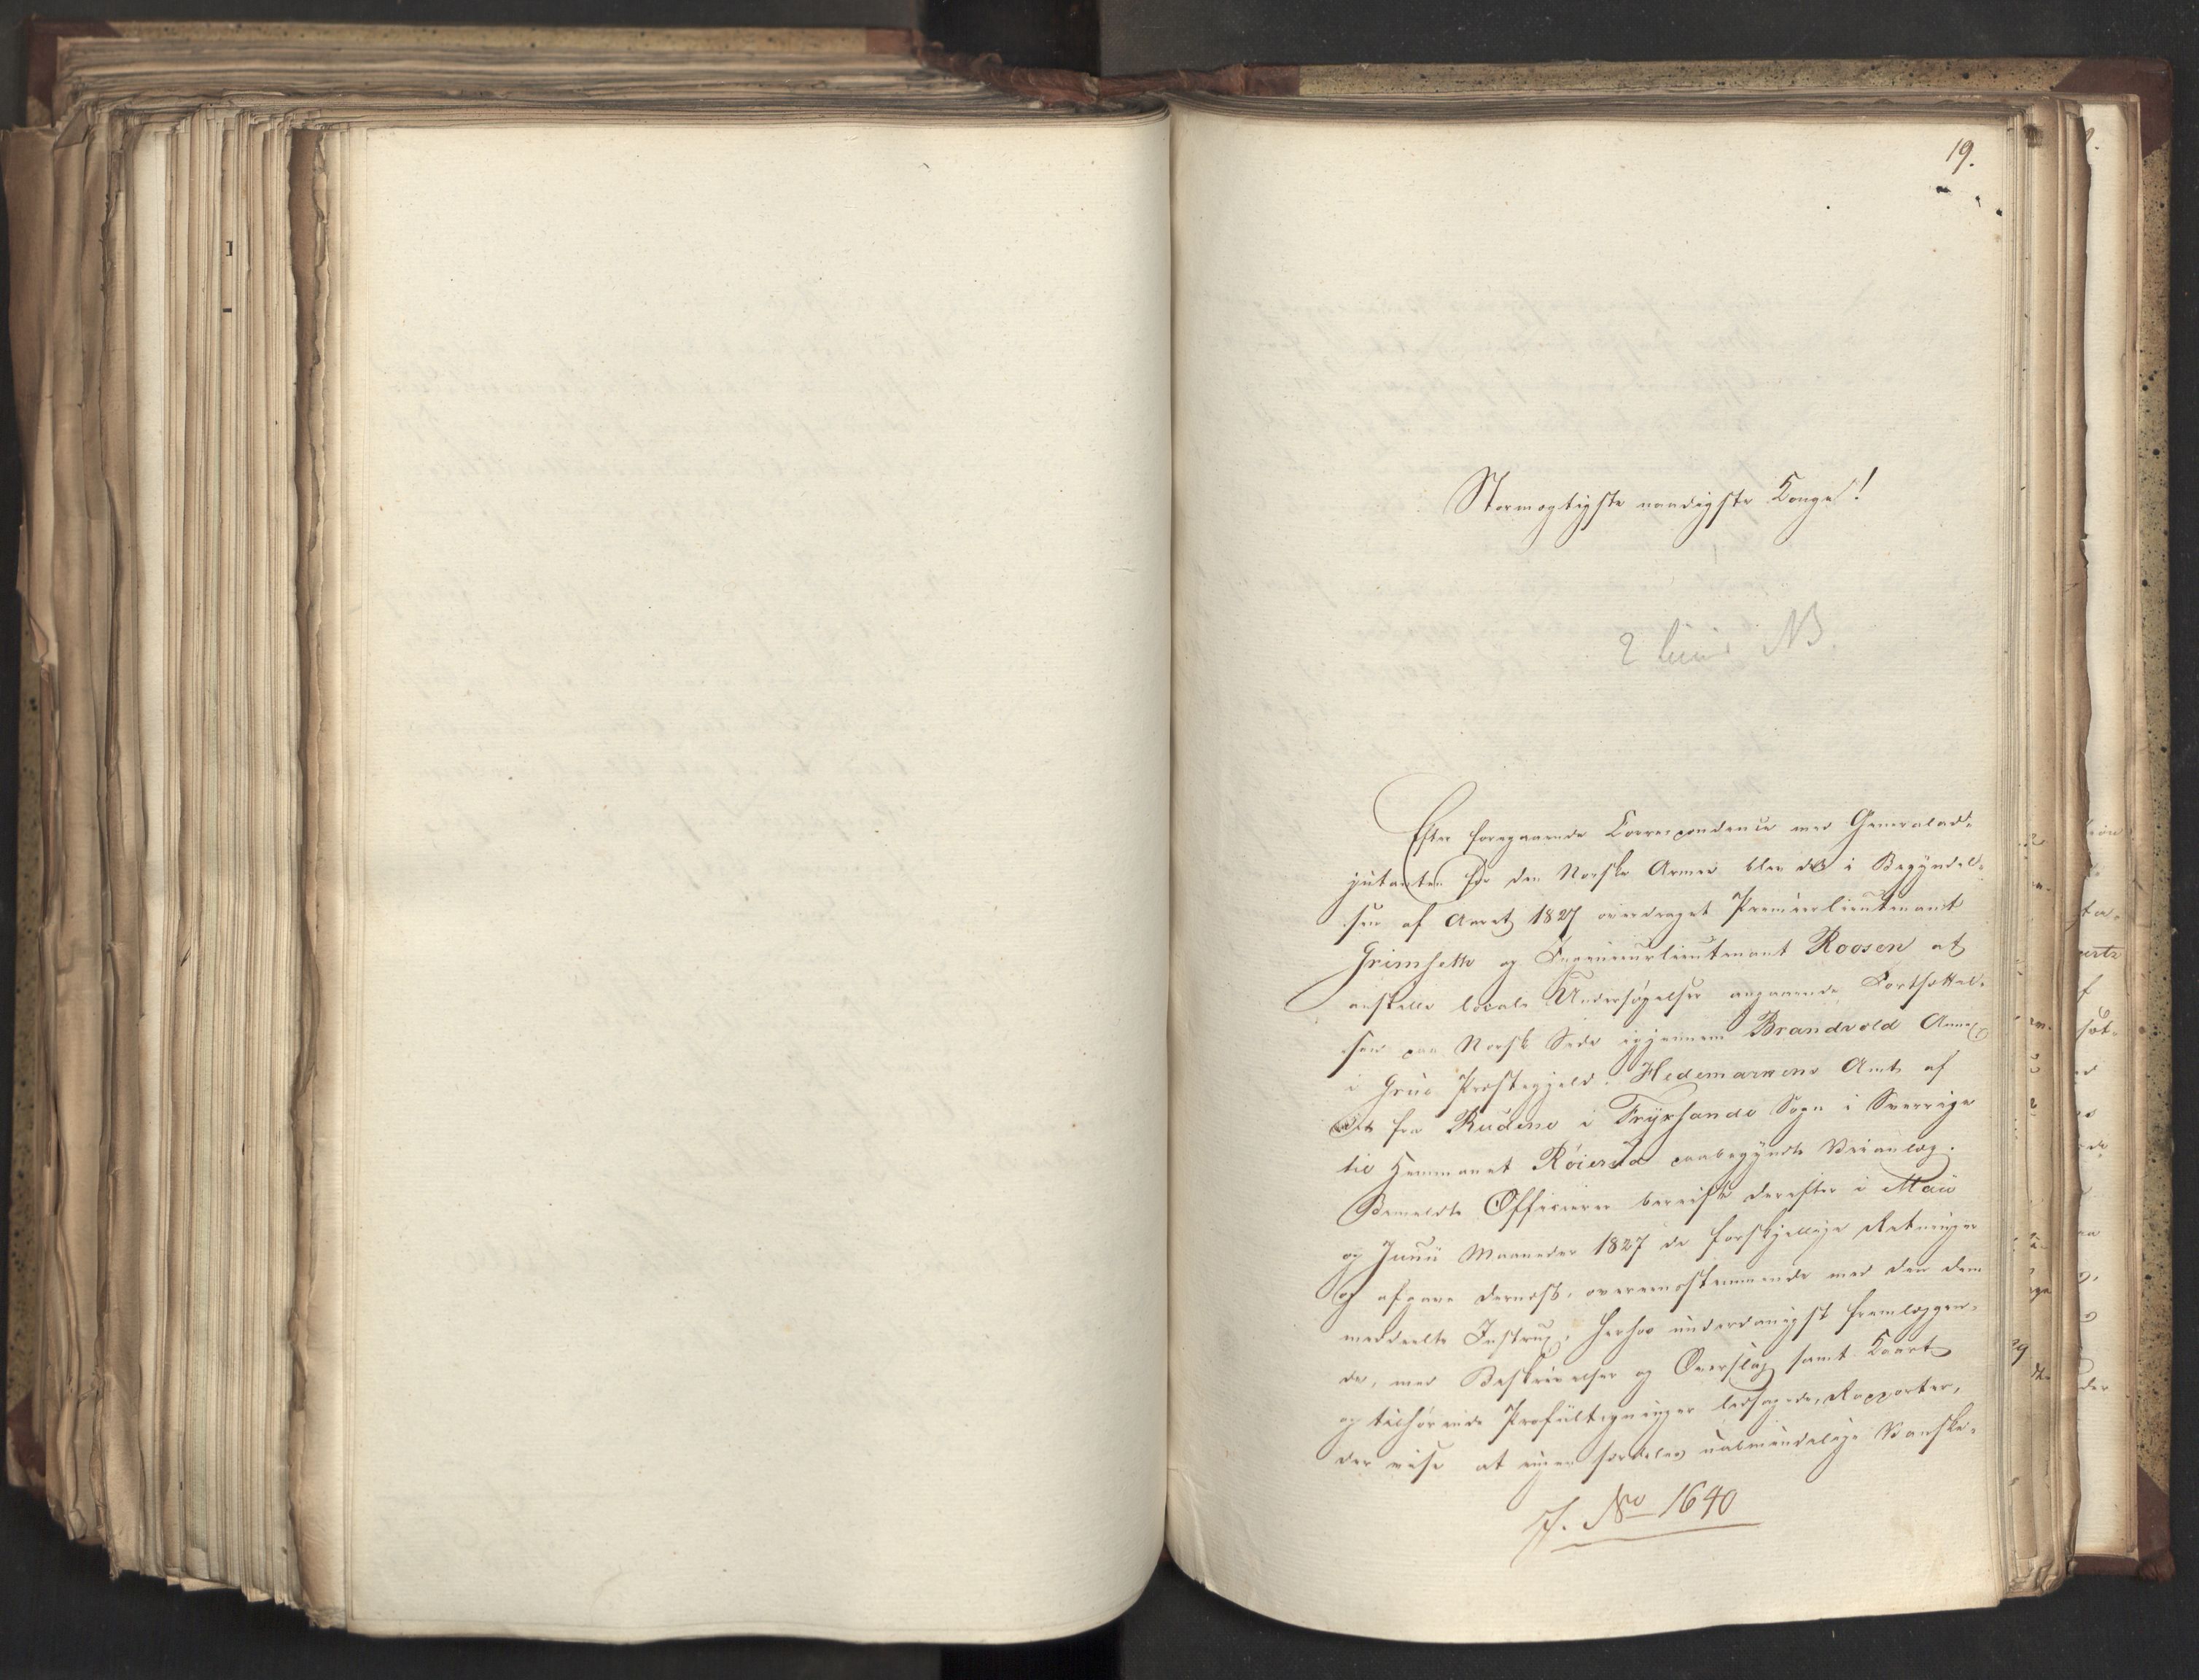 19.
Stormægtigste naadigste Konge!
2 NB.
Efter foregaaende Correspondence med Generalad-
jutanten for den Norske Armee blev det i Begyndel-
sen af Aaret 1827 overdraget Premierlieutenant
Grimseth og Ingenieurlieutenant Roosen at
anstille locale Undersøgelser angaaende Fortsættel-
sen paa Norsk Side igjennem Brandvold Annex
i Grue Præstegjeld Hedemarkens Amt af
det fra Rudene i Fryksande Sogn i Sverrige
til Hemmanet Röierda paabegyndte Veianlæg.
Bemeldte Officierer bereiste derefter i Maii
og Junii Maaneder 1827 de forskjellige Retninger
og afgave dernæst, overeensstemmende med den dem
meddeelte Instrux, herhos underdanigst fremlæggen-
de, med Beskrivelser og Overslag samt Kaart
og tilhørende Profiltegninger ledsagede, Rapporter,
der vise at ingen særdeles ualmindelige Vanske-
J. No 1640